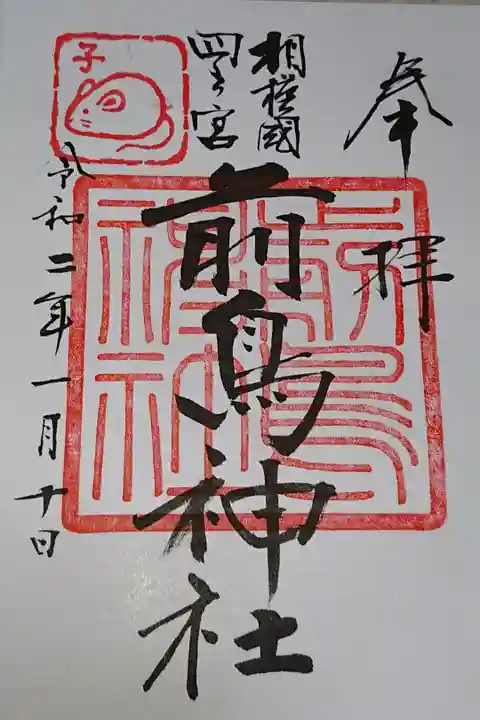 奉拝
相模國
四之宮
前鳥神社
子
令和二年一月十日
前鳥
神社